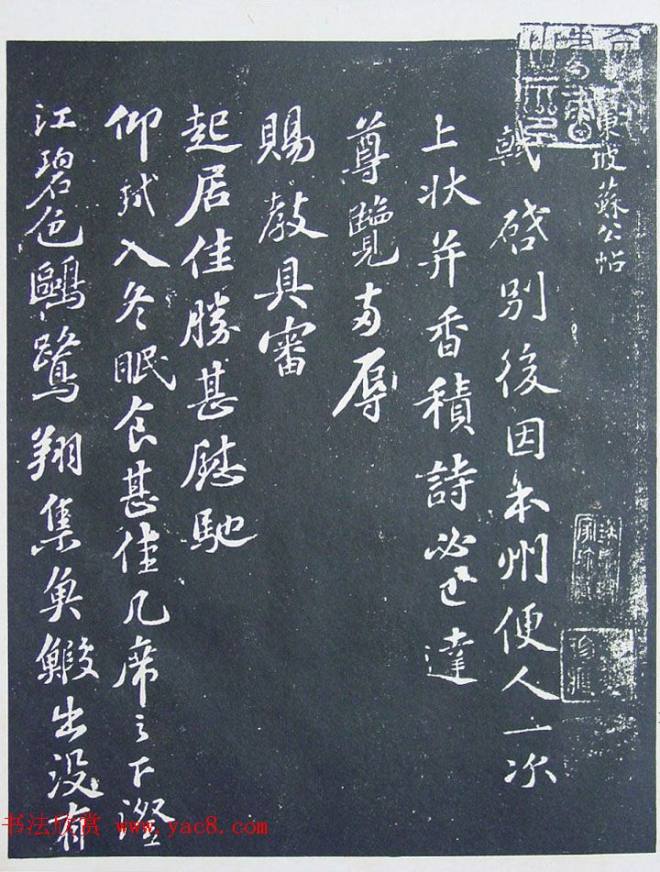 東坡蘇公帖
軾啓別後因本州便人一次
上狀并香積詩必已達
尊覽兩辱
賜教具審
起居佳勝甚慰馳
仰軾入冬眠食甚佳几席之下澄
江碧色鷗鷺翔集魚鰕出沒有
书法欣赏 www.yac8.com